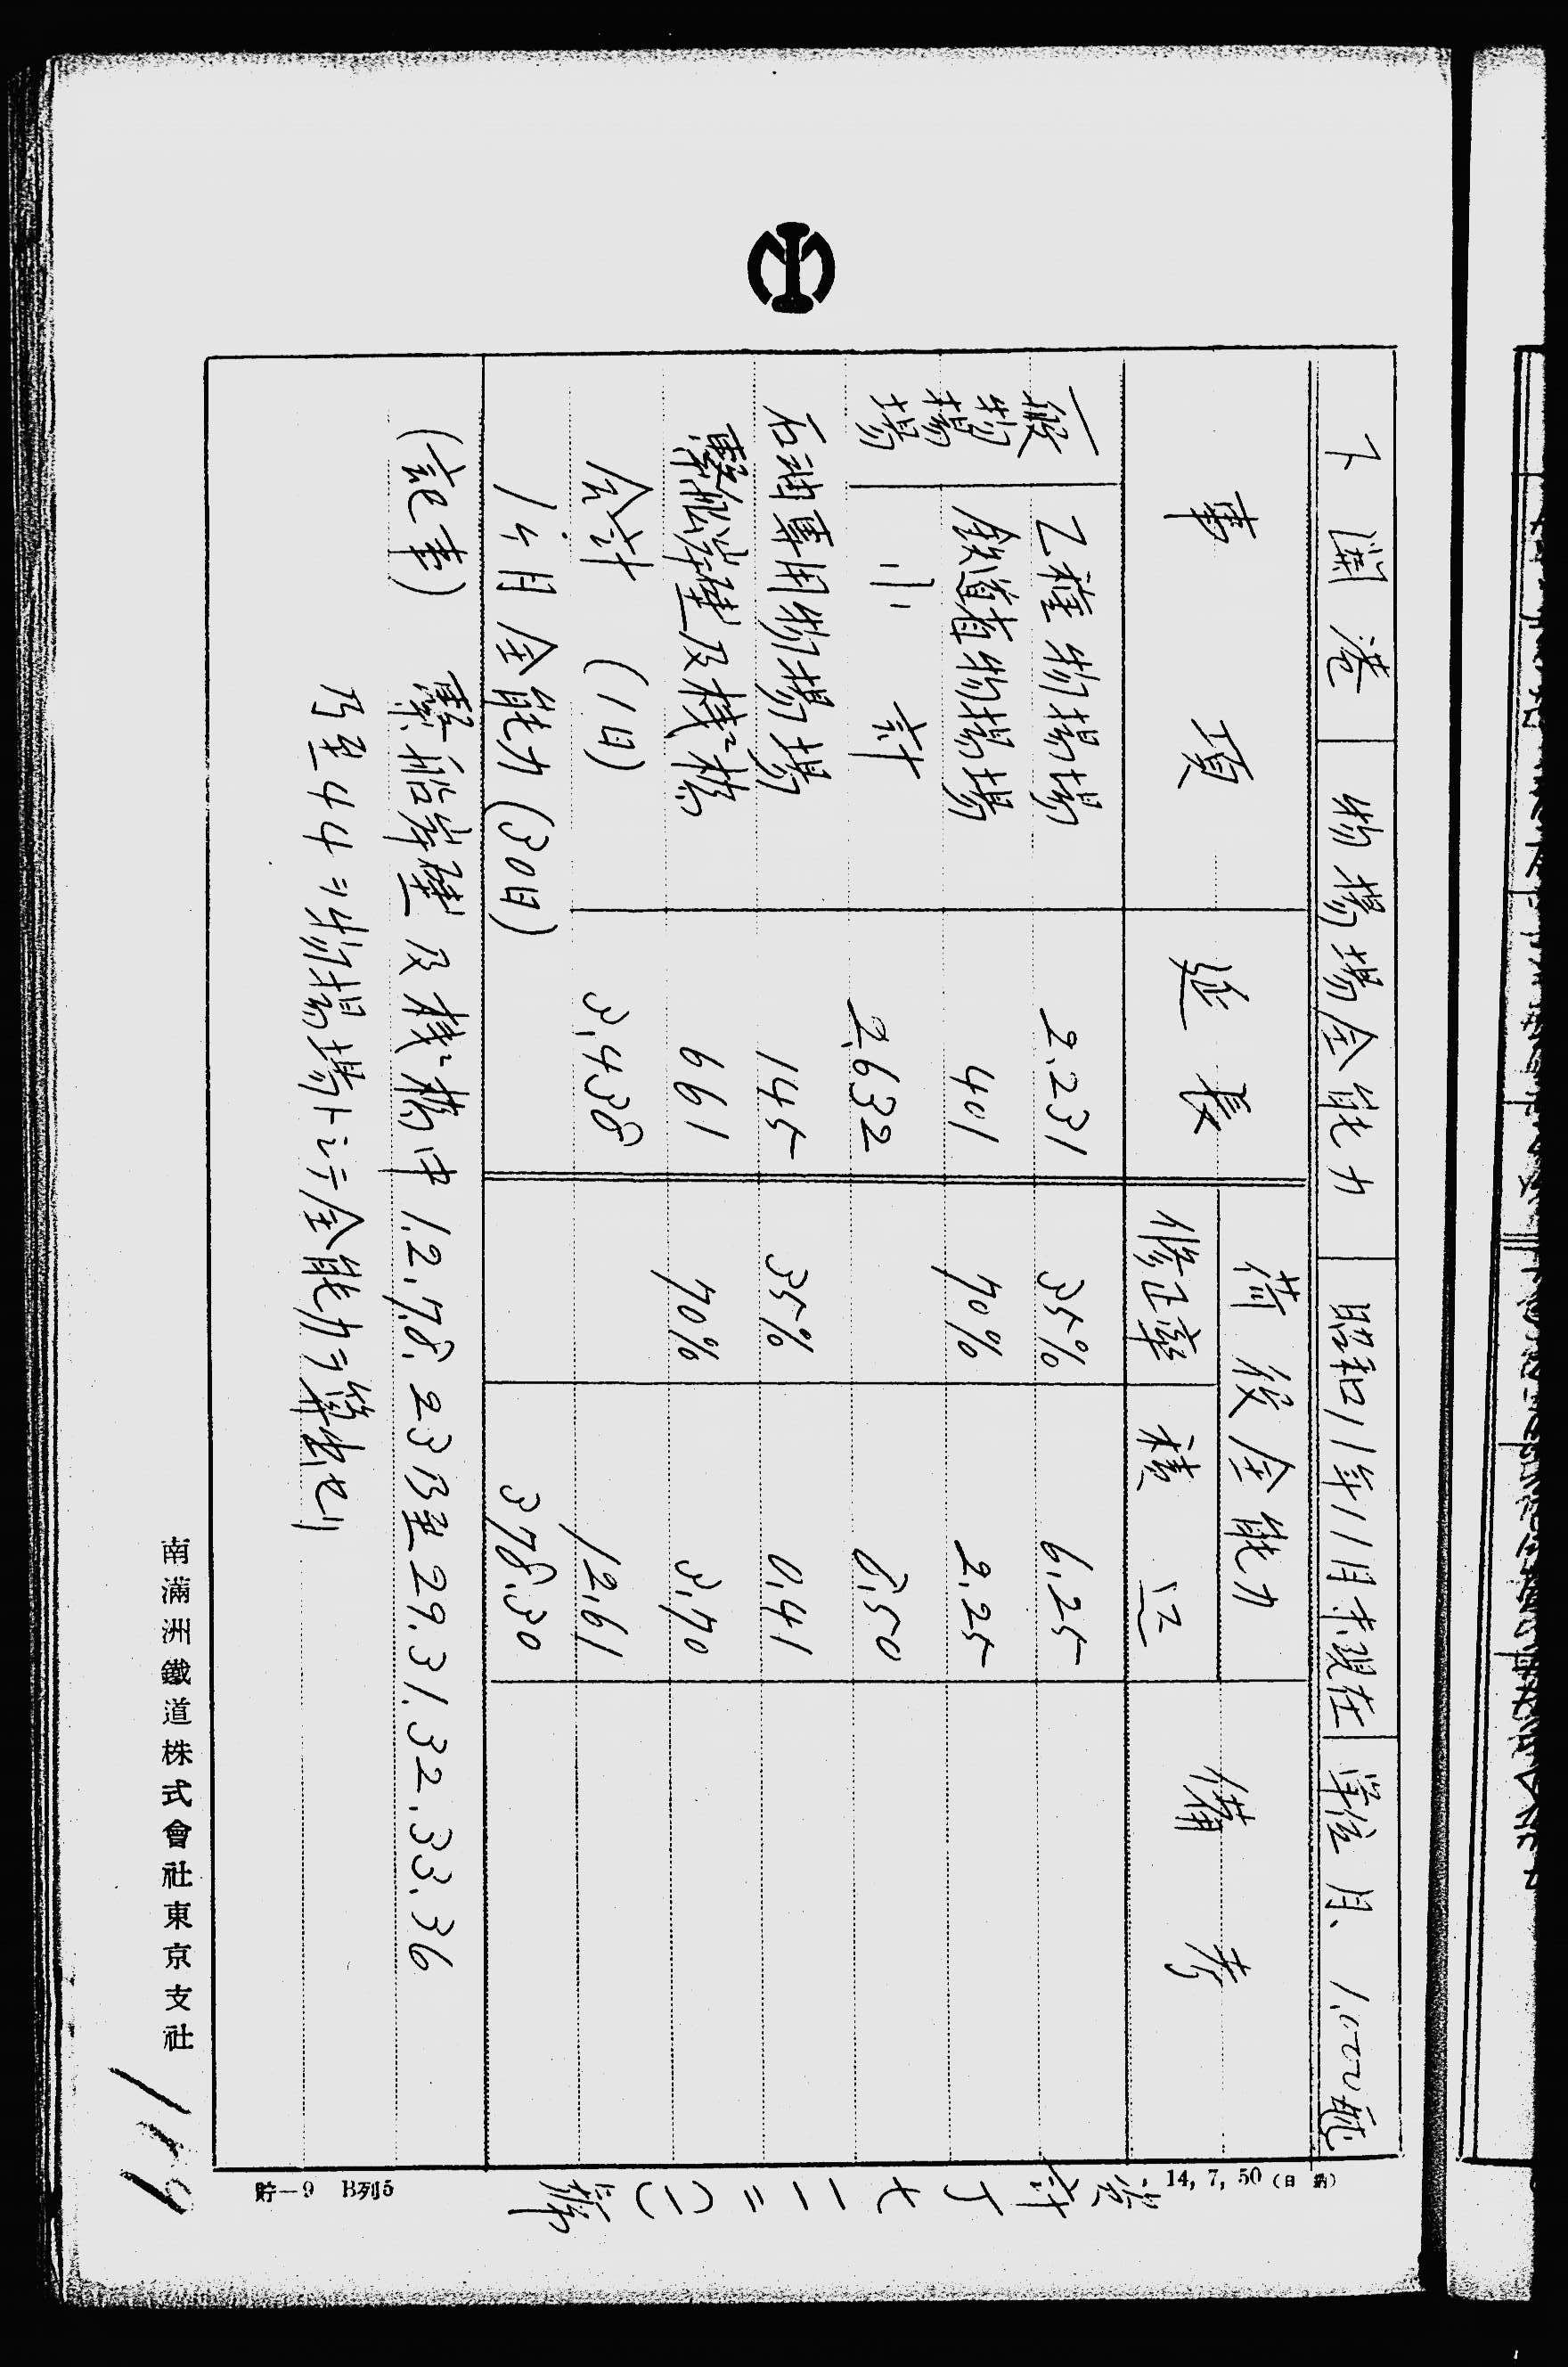 下関港 物揚場全能力 昭和11年11月末現在 単位 月、1,000瓲
事項 延長 荷役全能力 備考
修正率 積
一般物揚場
乙種物揚場 2,231 35% 6.25
鉄道省物揚場 401 70% 2.25
小計 2,632 8.50
石油専用物揚場 145 35% 0.41
繋船岸壁及桟橋 661 70% 3.70
合計 (1日) 3,438 12.61
1ヶ月全能力(30日) 378.30
(記事) 繋船岸壁及桟橋中 1.2.7.8. 23乃至29.31.32.33.36
乃至44ヲ物揚場トシテ全能力ヲ算出セリ
南滿洲鐵道株式會社東京支社
貯—9 B列5
14, 7, 50
119